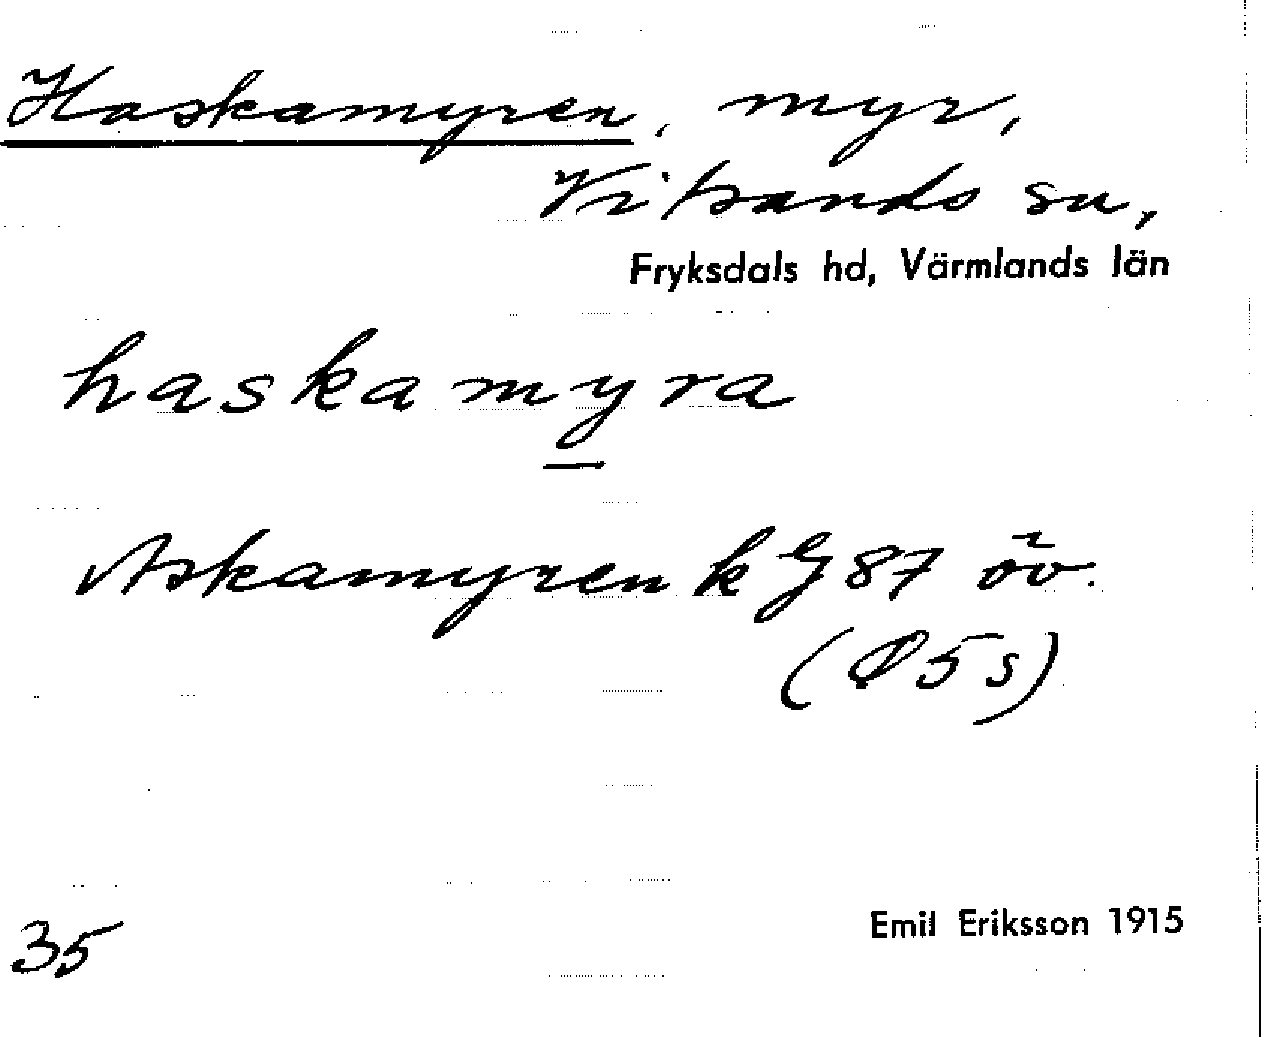 Haskamyren, myr,
Vitsands sn,
Fryksdals hd, Värmlands län
haskamyra
Askamyren k G 87 öv.
( 5 s)
35
Emil Eriksson 1915